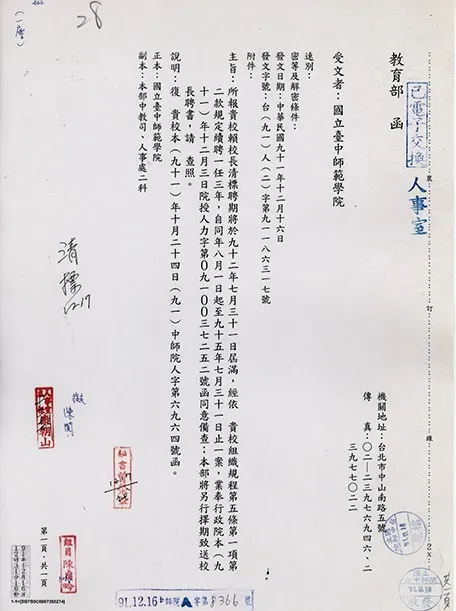 教育部　函
已電子交換
人事室
機關地址：台北市中山南路五號
傳　真：０二－二三九七六九四六、二三九七七０二二
受文者：國立臺中師範學院
速別：
密等及解密條件：
發文日期：中華民國九十一年十二月十六日
發文字號：台（九一）人（二）字第九一一八六三一七號
附件：
主旨：所報貴校賴校長清標聘期將於九十二年七月三十一日屆滿，經依　貴校組織規程第五條第一項第
二款規定續聘一任三年，自同年八月一日起至九十五年七月三十一日止一案，業奉行政院本（九
十一）年十二月三日院授人力字第０九一００三七二五二號函同意備查；本部將另行擇期致送校
長聘書，請　查照。
說明：復　貴校（九十一）年十月二十四日（九一）中師院人字第六九六四號函。
正本：國立臺中師範學院
副本：本部中教司、人事處二科
28
清標
12/17
第一頁，共一頁
91.12.16
師院A字第8366號
裝
訂
線